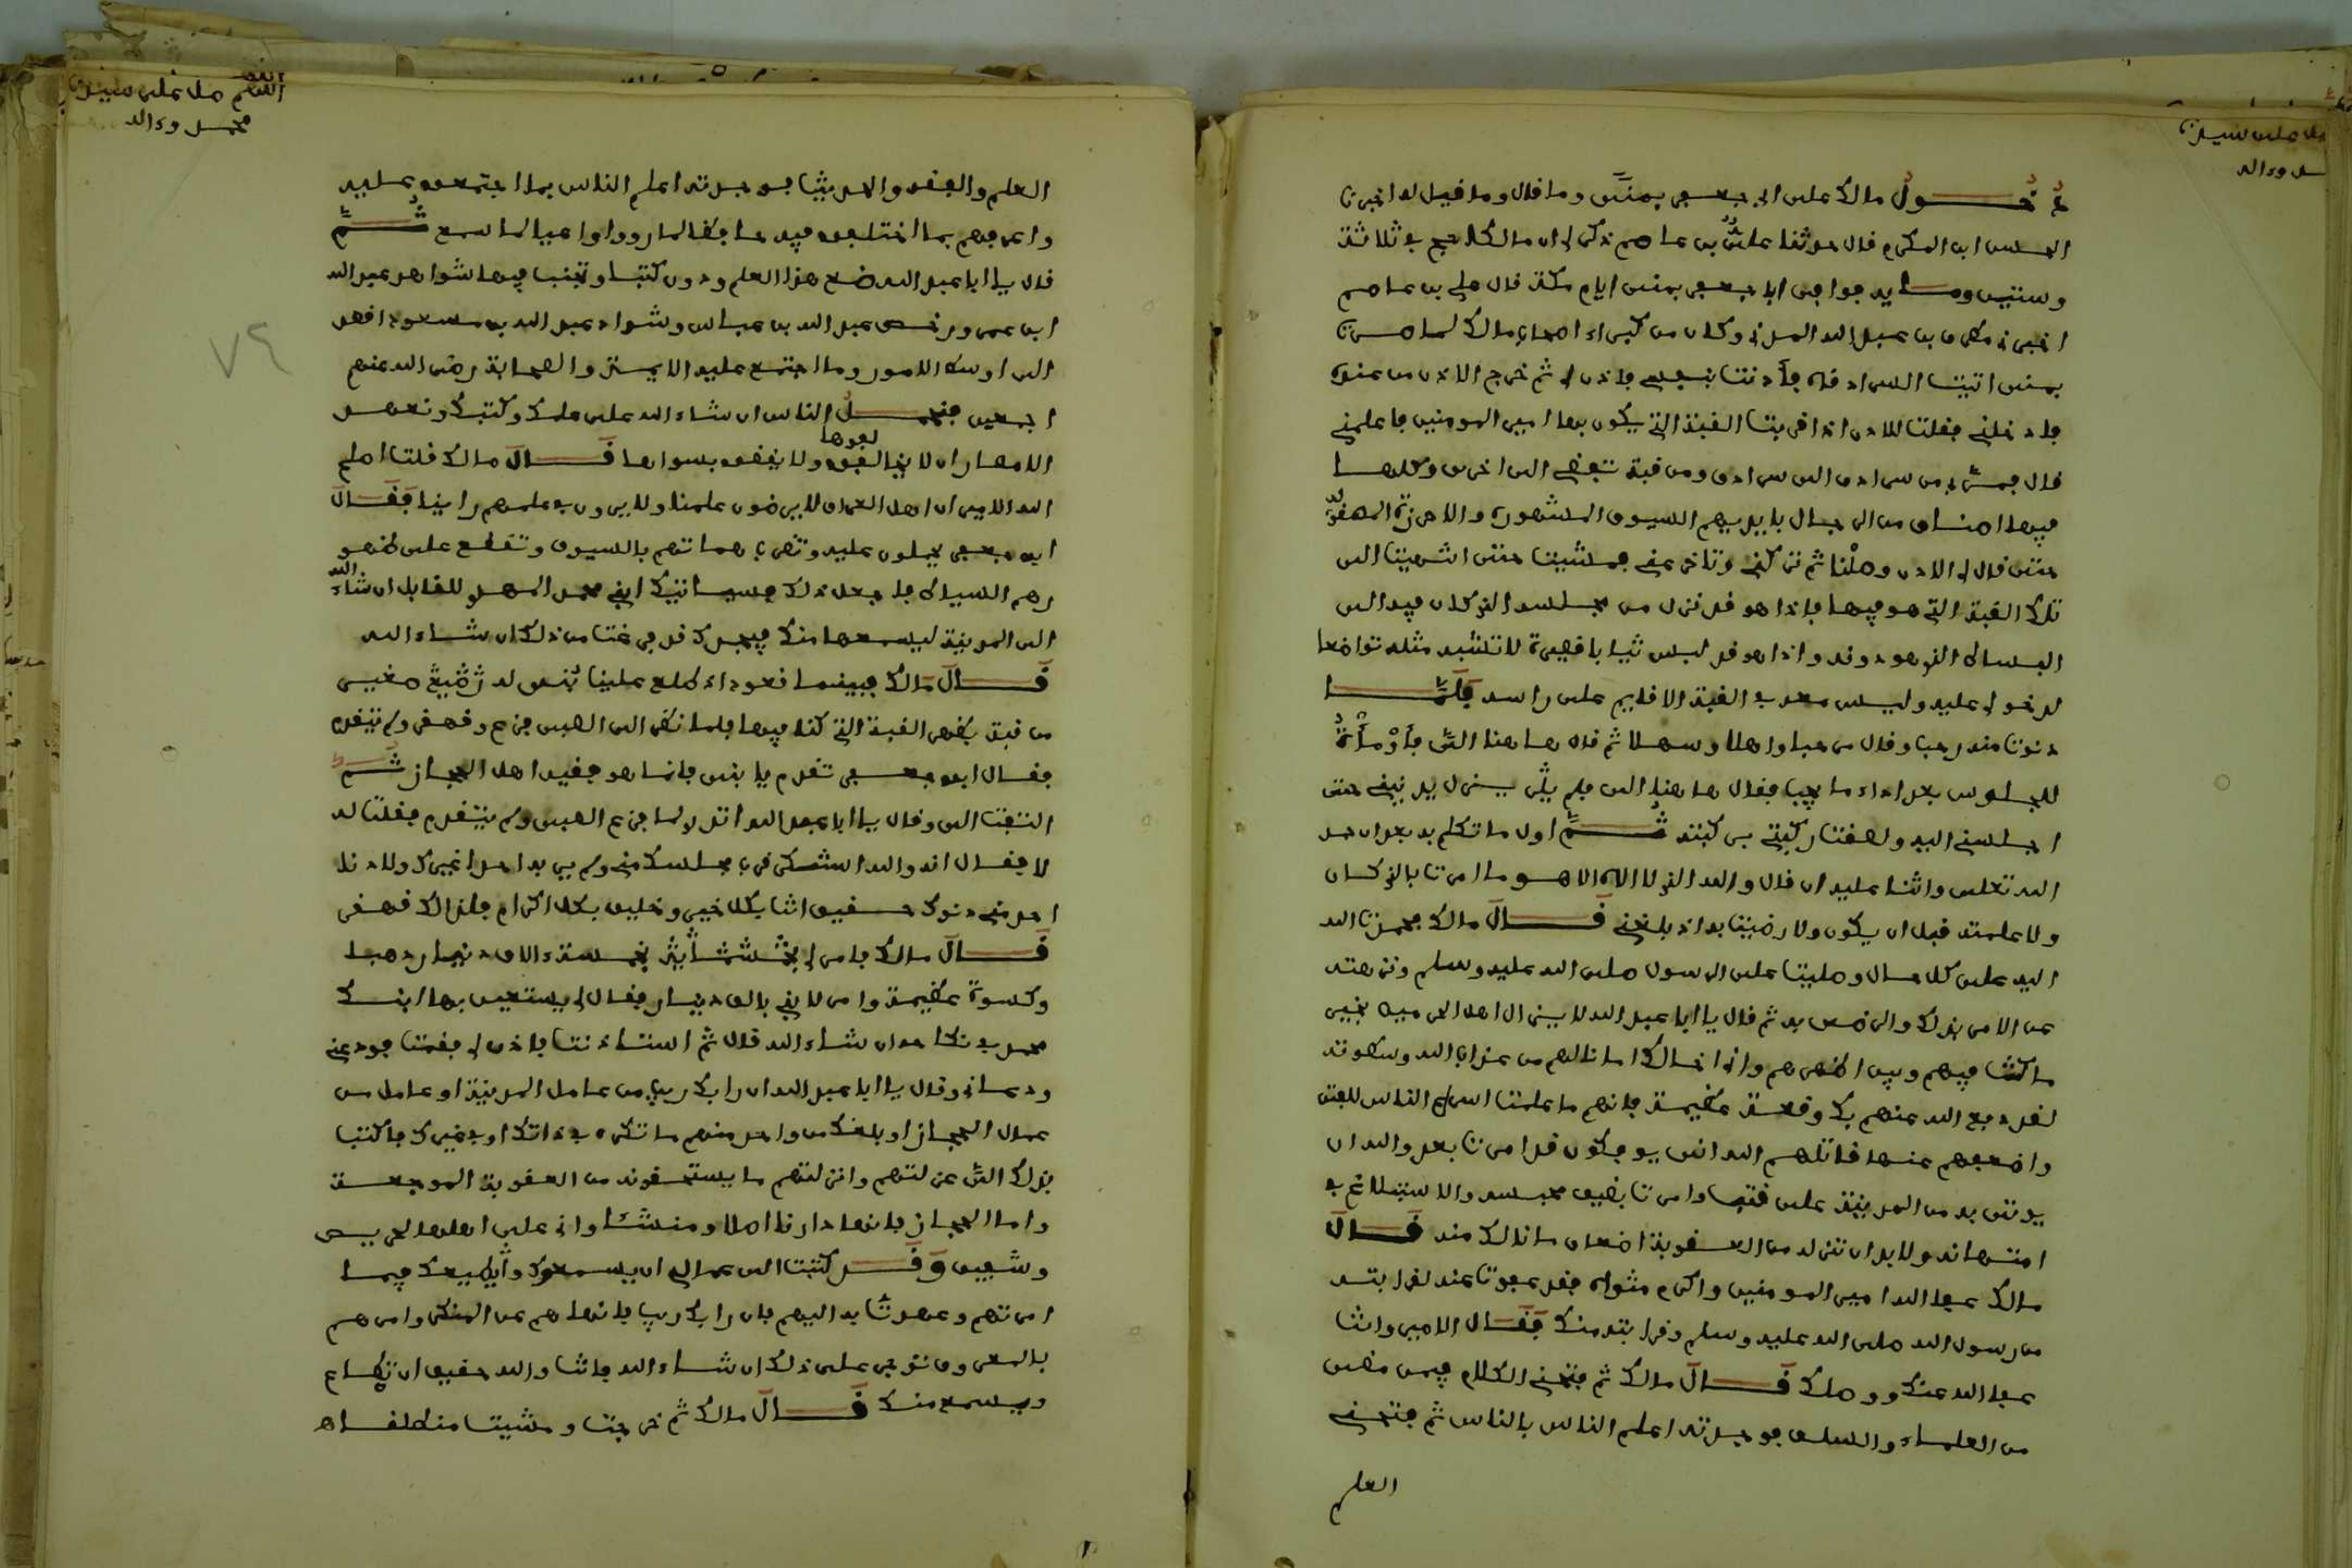 دخول مالك على ابي جعفر بمنى وما قال وما قيل له اخبرنا
الحسن ابن المكرم قال حدثنا علي بن عاصم ذكر لي ان مالكا حج في ثلاثة
وستين ومائة فوافى ابا جعفر بمنى ايام مكة قال علي بن عاصم
اخبرني مطرف بن عبد الله المدني وكان من كبراء اصحاب مالك لما صرنا
بمنى اتيت السرادق فأذنت بنفسي فاذن لي ثم خرج الاذن من عنده
فادخلني فقلت للاذن اذا قربت القبة التي يكون بها امير المومنين فاعلمني
قال فمر بي من سرادق الى سرادق ومن قبة تفضي الى اخرى وكلها
فيها اصناف من الرجال بايديهم السيوف المشهورة والاحرزة المصفوفة
حتى قال لي الاذن وصلنا ثم تركني وتاخر عني فمشيت حتى انتهيت الى
تلك القبة التي هو فيها فاذا هو قد نزل من مجلسه الذي كان فيه الى
البساط الذي هو دونه واذا هو قد لبس ثيابا قصيرة لا تشبه مثله تواضعا
لدخولي عليه وليس معه في القبة الا قايم على راسه فلما
دنوت منه رحب وقال مرحبا واهلا وسهلا ثم قال هاهنا الي فأومأت
للجلوس بعد اداء ما يجب فقال هاهنا الي فلم يزل يدنيني حتى
اجلسني اليه ولصقت ركبتي بركبته ثم اول ما تكلم به بعد ان حمد
الله تعلى واثنا عليه ان قال والله الذي لا اله الا هو ما امرت بالذي كان
ولا علمته قبل ان يكون ولا رضيت به اذ بلغني قال مالك فحمدت الله
اليه على كل حال وصليت على الرسول صلى الله عليه وسلم ونزهته
عن الامر بذلك والرضى به ثم قال يا ابا عبد الله لا يزال اهل الحرمين بخير
ما كنت فيهم وبين اظهرهم واني اخالك امانا لهم من عذاب الله وسطوته
لقد دفع الله عنهم بك وقعة عظيمة فانهم ما علمت اسرع الناس للفتن
واضعفهم عنها قاتلهم الله انى يوفكون قد امرت بعد والله ان
يوتى به من المدينة على قتب وامرت بضيق محبسه والاستبلاغ في
امتهانه ولا بد ان تنزله من العقوبة اضعاف ما نالك منه قال
مالك عفا الله امير المومنين واكرم مثواه فقد عفوت عنه لقرابته
من رسول الله صلى الله عليه وسلم وقرابته منك فقال الامير وانت
عفا الله عنك ووصلك قال مالك ثم فتحني الكلام فيمن مضى
من العلماء والسلف فوجدته اعلم الناس بالناس ثم فتحني
العلم
العلم والفقه والحديث فوجدته اعلم الناس بما اجتمعوا عليه
واعرفهم بما اختلفوا فيه حافظا لما روى واعيا لما سمع ثم
قال يا ابا عبد الله ضع هذا العلم ودون كتبا وتجنب فيها شواهد عبد الله
ابن عمر ورخص عبد الله بن عباس وشواذ عبد الله بن مسعود اقصد
الى اوسط الامور وما اجتمع عليه الايمة والصحابة رضى الله عنهم
اجمعين فنحمل الناس ان شاء الله على علمك وكتبك ونعهد
الامصار ان لا يخالفوها ولا يقضوا بسواها قال مالك فقلت اصلح
الله الامير ان اهل العراق لا يرضون علمنا ولا يرون في علمهم راينا فقال
ابو جعفر يحملون عليه وتضرب هاماتهم بالسيوف وتقطع على ظهو
رهم السياط فاجعل ذلك فسياتيك ابني محمد المهدي للقابل ان شاء الله
الى المدينة ليسمعها منك فيجدك قد فرغت من ذلك ان شاء الله
قال مالك فبينما نحن قعود اذ طلع علينا بني له صغير
من قبة بظهر القبة التي كنا فيها فلما نظر الى الصبي فزع وقهقر ولم يتقدم
فقال ابو جعفر تقدم يا بني فانما هو فقيه اهل الحجاز ثم
التفت الي وقال يا ابا عبد الله اتدري لما فزع الصبي ولم يتقدم فقلت له
لا فقال انه والله استنكر قرب مجلسك مني ولم ير به احدا غيرك ولا دنا
احد مني دنوك حقيق انت بكل خير وخليق بكل اكرام فلذلك قهقر
قال مالك فامر لي بخمسة الاف دينار ذهبا
وكسوة عظيمة وامر لابني بالف دينار فقال لي يستعين بها ابنك
محمد في نكاحه ان شاء الله قال ثم استاذنت فاذن لي فقمت فودعني
ودعا لي وقال يا ابا عبد الله ان رابك ريب من عامل المدينة او عامل من
عمال الحجاز او بلغك من واحد منهم ما تكره في ذاتك او في غيرك فاكتب
بذلك الي عزلتهم وانزلتهم ما يستحقونه من العقوبة الموجعة
واما الحجاز فانها دارنا اصلا ومنشئا واني على اهلها لحريص
وشفيق وقد كتبت الى عمالي ان يسمعوك ويطيعك فيما
امرتهم وعهدت به اليهم فان رابك ريب فانهاهم عن المنكر وامرهم
بالمعروف توجر على ذلك ان شاء الله فانت والله حقيق ان تطاع
ويسمع منك قال مالك ثم خرجت ومشيت منطلقا اه
اللهم صل على سيدنا
محمد وءاله
٧٤